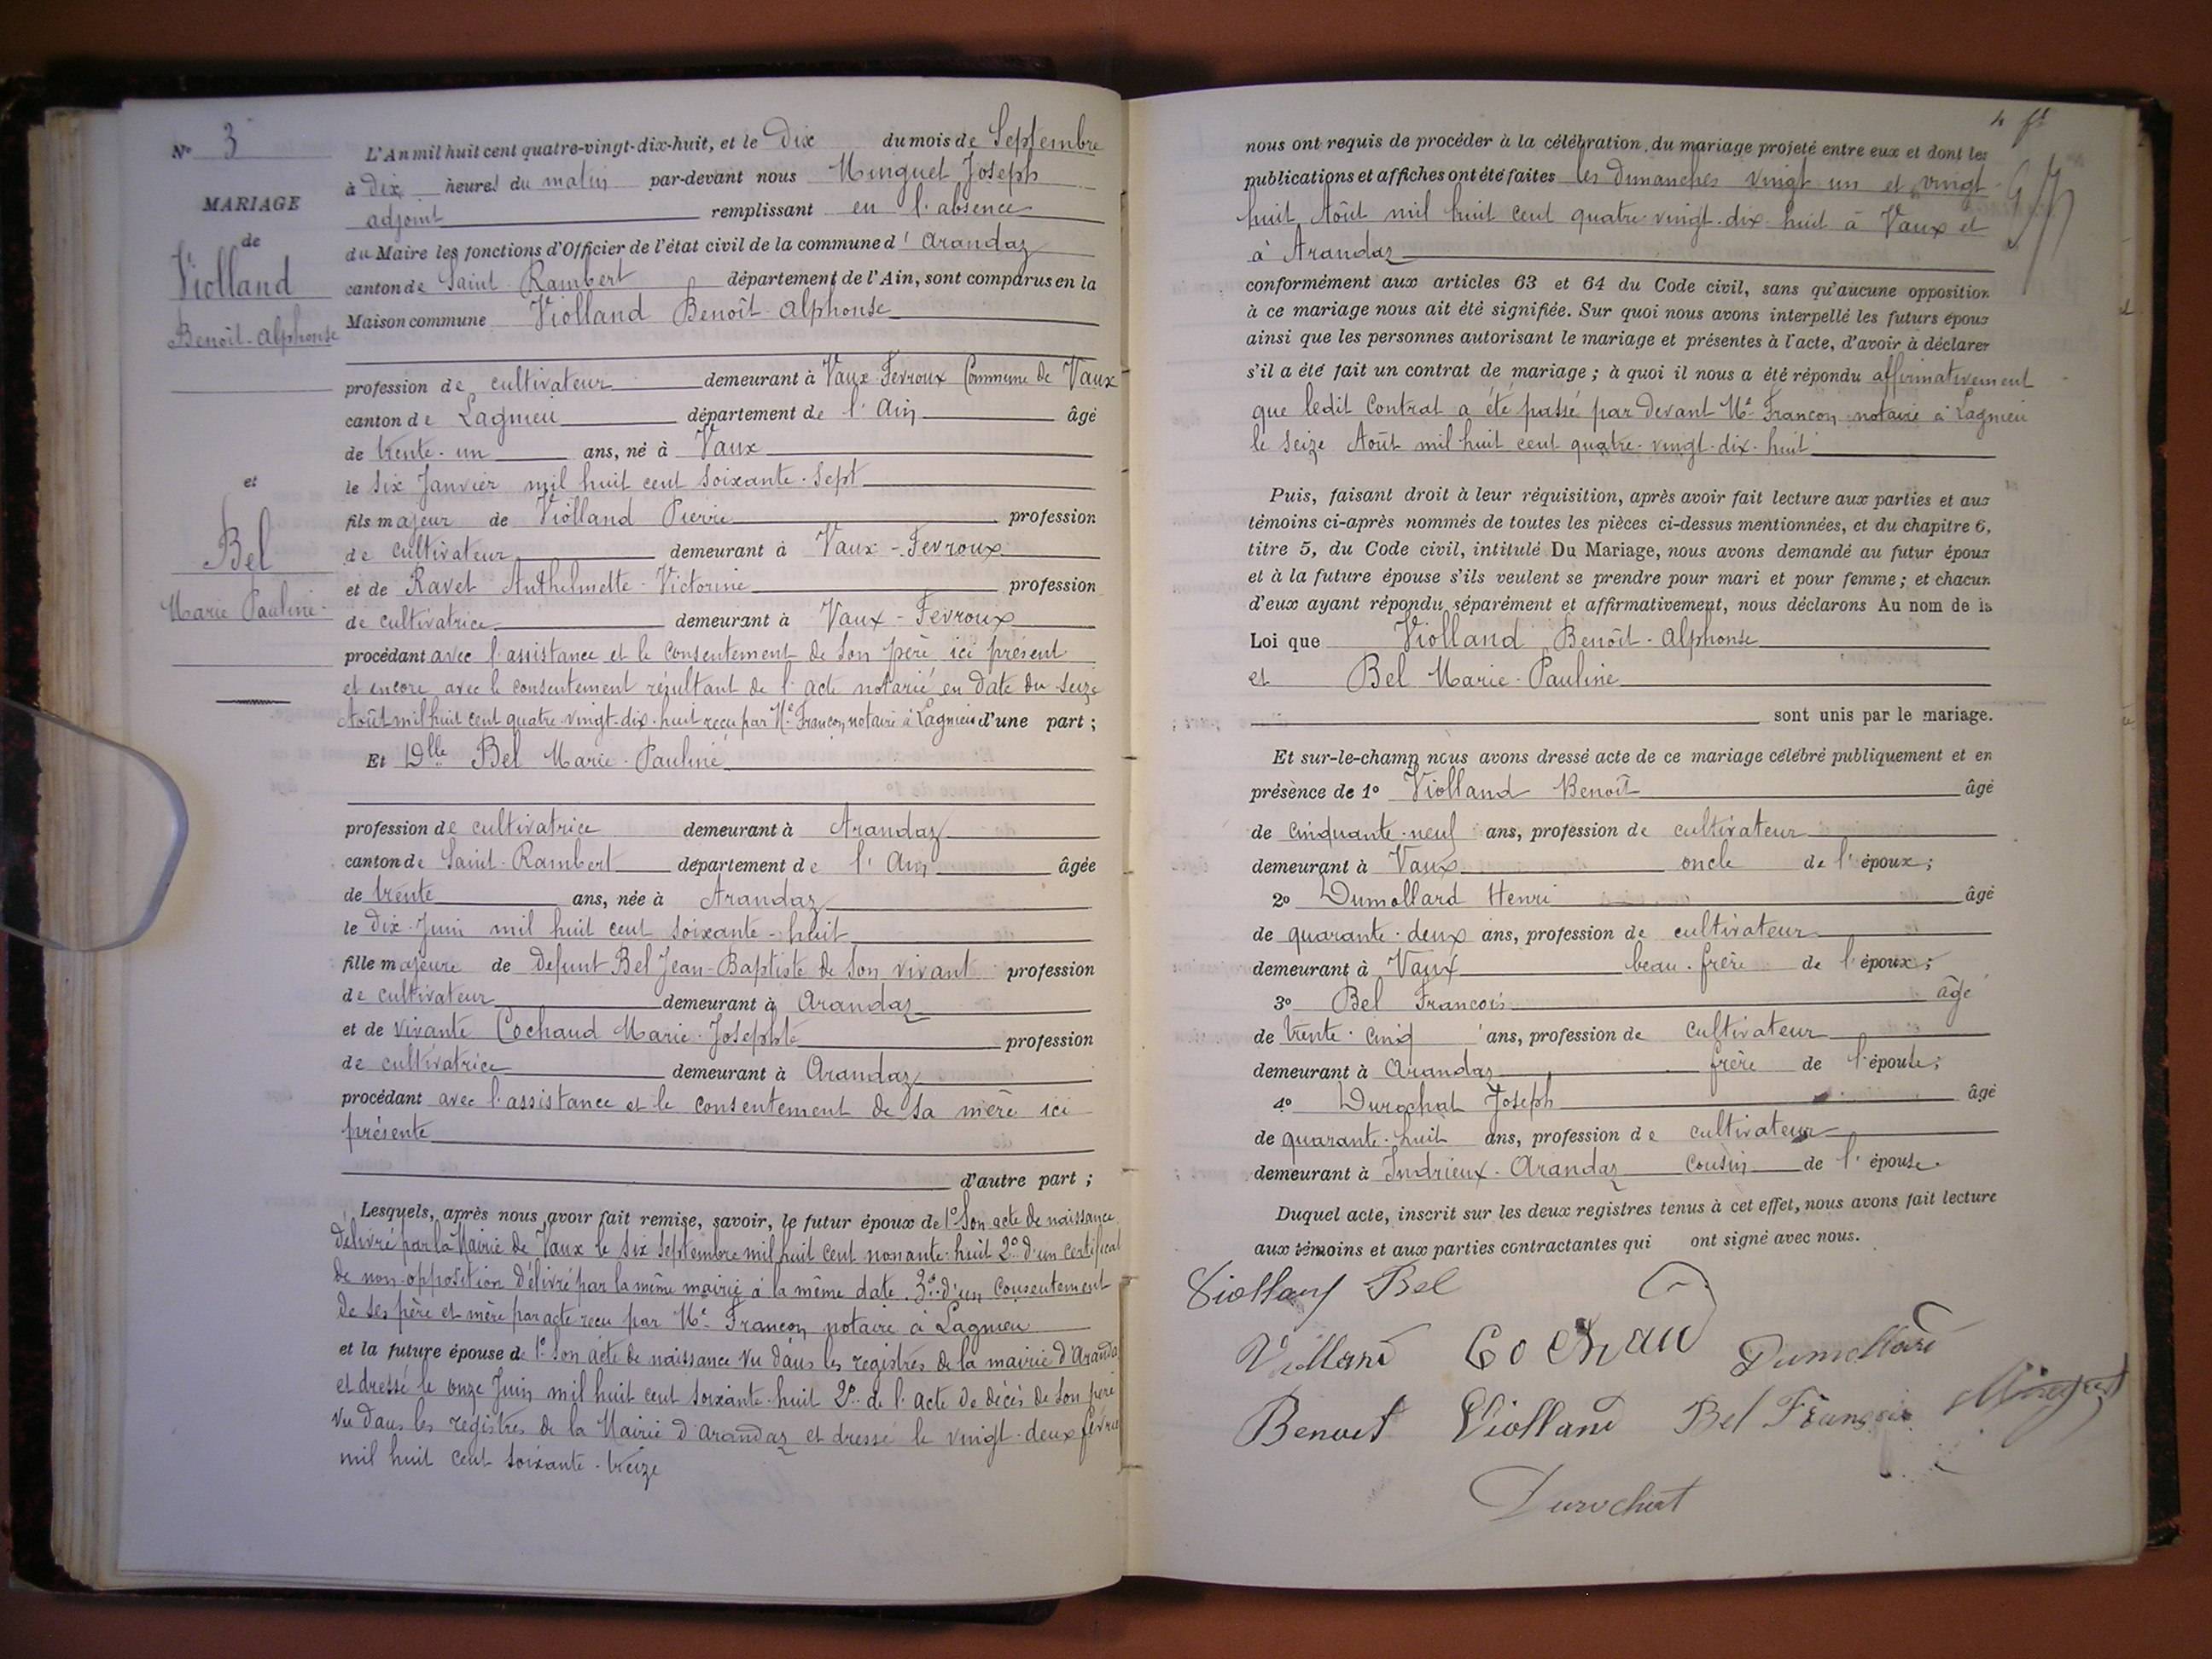 N° 3
MARIAGE
de
Violland
Benoît-Alphonse
et
Bel
Marie Pauline
L'An mil huit cent quatre-vingt-dix-huit, et le Dix du mois de Septembre
à Dix heures du matin par-devant nous Minguet Joseph
adjoint remplissant en l'absence
du Maire les fonctions d'Officier de l'état civil de la commune d'Arandas
canton de Saint-Rambert département de l'Ain, sont comparus en la
Maison commune Violland Benoît-Alphonse
profession de cultivateur demeurant à Vaux-Fevroux Commune de Vaux
canton de Lagnieu département de l'Ain âgé
de trente-un ans, né à Vaux
le six Janvier mil huit cent soixante-sept
fils majeur de Violland Pierre profession
de cultivateur demeurant à Vaux-Fevroux
et de Ravet Anthelmette-Victorine profession
de cultivatrice demeurant à Vaux-Fevroux
procédant avec l'assistance et le consentement de son père ici présent
et encore avec le consentement résultant de l'acte notarié en date du seize
Août mil huit cent quatre-vingt-dix-huit reçu par Me Francon, notaire à Lagnieu d'une part ;
Et Dlle Bel Marie-Pauline
profession de cultivatrice demeurant à Arandas
canton de Saint-Rambert département de l'Ain âgée
de trente ans, née à Arandas
le dix Juin mil huit cent soixante-huit
fille majeure de défunt Bel Jean-Baptiste de son vivant profession
de cultivateur demeurant à Arandas
et de vivante Cochaud Marie-Josephte profession
de cultivatrice demeurant à Arandas
procédant avec l'assistance et le consentement de sa mère ici
présente
d'autre part ;
Lesquels, après nous avoir fait remise, savoir, le futur époux de 1° son acte de naissance
délivré par la Mairie de Vaux le six Septembre mil huit cent nonante-huit 2° d'un certificat
de non-opposition délivré par la même mairie à la même date. 3° d'un consentement
de ses père et mère par acte reçu par Me Francon notaire à Lagnieu
et la future épouse de 1° son acte de naissance vu dans les registres de la mairie d'Arandas
et dressé le onze Juin mil huit cent soixante-huit 2° de l'acte de décès de son père
vu dans les registres de la Mairie d'Arandas et dressé le vingt-deux février
mil huit cent soixante-treize
4 ft
nous ont requis de procéder à la célébration du mariage projeté entre eux et dont les
publications et affiches ont été faites les Dimanches vingt un et vingt
huit Août mil huit cent quatre-vingt-dix-huit à Vaux et
à Arandas
conformément aux articles 63 et 64 du Code civil, sans qu'aucune opposition
à ce mariage nous ait été signifiée. Sur quoi nous avons interpellé les futurs époux
ainsi que les personnes autorisant le mariage et présentes à l'acte, d'avoir à déclarer
s'il a été fait un contrat de mariage ; à quoi il nous a été répondu affirmativement
que ledit Contrat a été passé par devant Me Francon notaire à Lagnieu
le seize Août mil huit cent quatre-vingt-dix-huit
Puis, faisant droit à leur réquisition, après avoir fait lecture aux parties et aux
témoins ci-après nommés de toutes les pièces ci-dessus mentionnées, et du chapitre 6,
titre 5, du Code civil, intitulé Du Mariage, nous avons demandé au futur époux
et à la future épouse s'ils veulent se prendre pour mari et pour femme ; et chacun
d'eux ayant répondu séparément et affirmativement, nous déclarons Au nom de la
Loi que Violland Benoît-Alphonse
et Bel Marie-Pauline
sont unis par le mariage.
Et sur-le-champ nous avons dressé acte de ce mariage célébré publiquement et en
présence de 1° Violland Benoît âgé
de cinquante-neuf ans, profession de cultivateur
demeurant à Vaux oncle de l'époux ;
2° Dumollard Henri âgé
de quarante-deux ans, profession de cultivateur
demeurant à Vaux beau-frère de l'époux ;
3° Bel François âgé
de trente-cinq ans, profession de cultivateur
demeurant à Arandas frère de l'épouse ;
4° Durochat Joseph âgé
de quarante-huit ans, profession de cultivateur
demeurant à Indrieux-Arandas cousin de l'épouse.
Duquel acte, inscrit sur les deux registres tenus à cet effet, nous avons fait lecture
aux témoins et aux parties contractantes qui ont signé avec nous.
Violland Bel
Violland Cochau Dumollard
Benoit Violland Bel François Minguet
Durochat